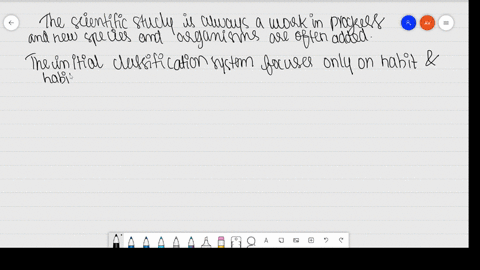 The scientific study is always a work in progress
and new species and organisms are often added.
The initial classification system focuses only on habit &
habi